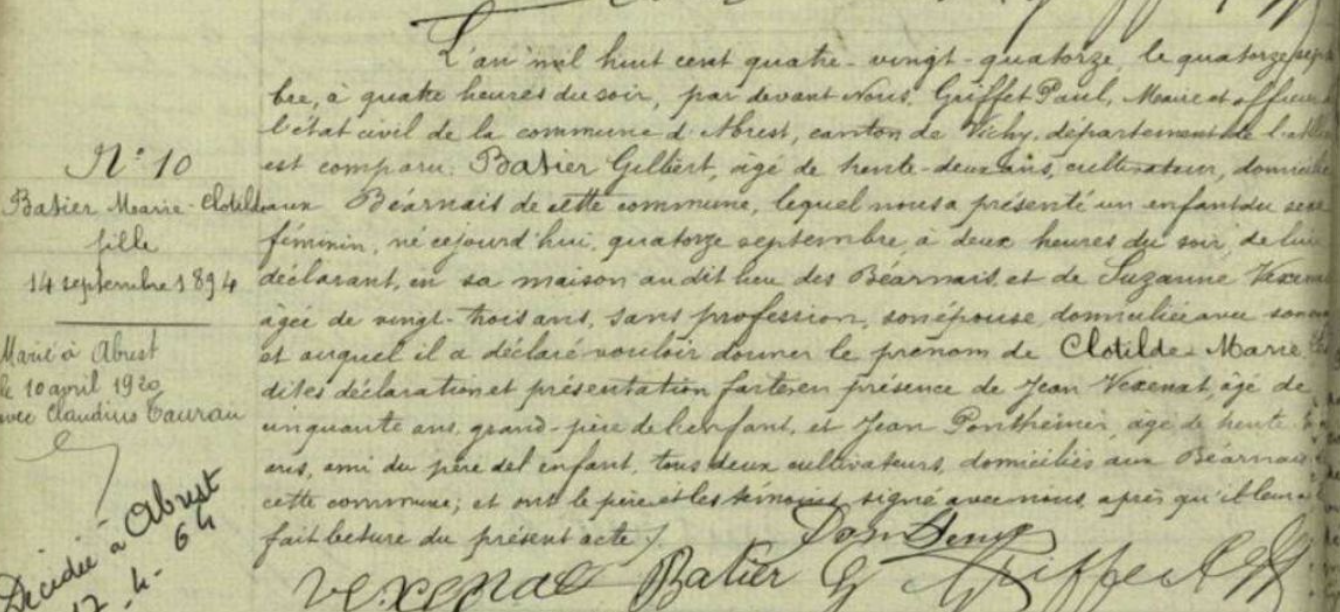 N° 10
Batier Marie-Clotilde
fille
14 septembre 1894
Marié à Abrest
le 10 avril 1920
avec Claudius
Décédée à Abrest
17-4-64
L'an mil huit cent quatre-vingt-quatorze, le quatorze septem
bre, à quatre heures du soir, par devant Nous, Griffet Paul, Maire et officier
l'état civil de la commune d'Abrest, canton de Vichy, département de l'Allier
est comparu Batier Gilbert, âgé de trente-deux ans, cultivateur, domicilié
aux Béarnais de cette commune, lequel nous a présenté un enfant du sexe
féminin, né cejourd'hui, quatorze septembre, à deux heures du soir, de lui
déclarant, en sa maison audit lieu des Béarnais, et de Suzanne Vexenat
âgée de vingt-trois ans, sans profession, son épouse, domiciliée avec son
et auquel il a déclaré vouloir donner le prénom de Clotilde-Marie
dites déclaration et présentation faites en présence de Jean Vexenat, âgé de
cinquante ans, grand-père de l'enfant, et Jean âgé de trente
ans, ami du père de l'enfant, tous deux cultivateurs, domiciliés aux Béarnais
cette commune; et ont le père et les témoins signé avec nous, après qu'il leur a
fait lecture du présent acte /.
Vexenat Batier G Griffet